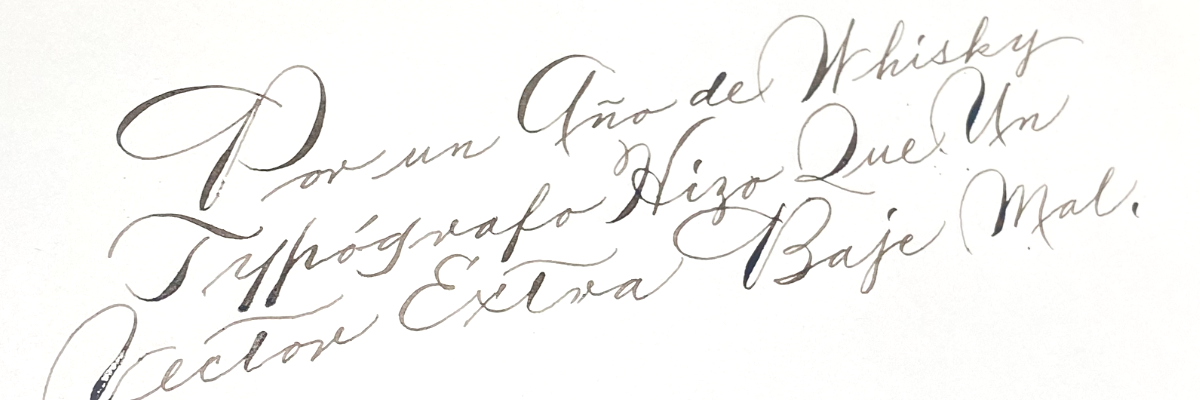 Por un Año de Whisky
Typógrafo Hizo Que Un
Vector Extra Baje Mal.